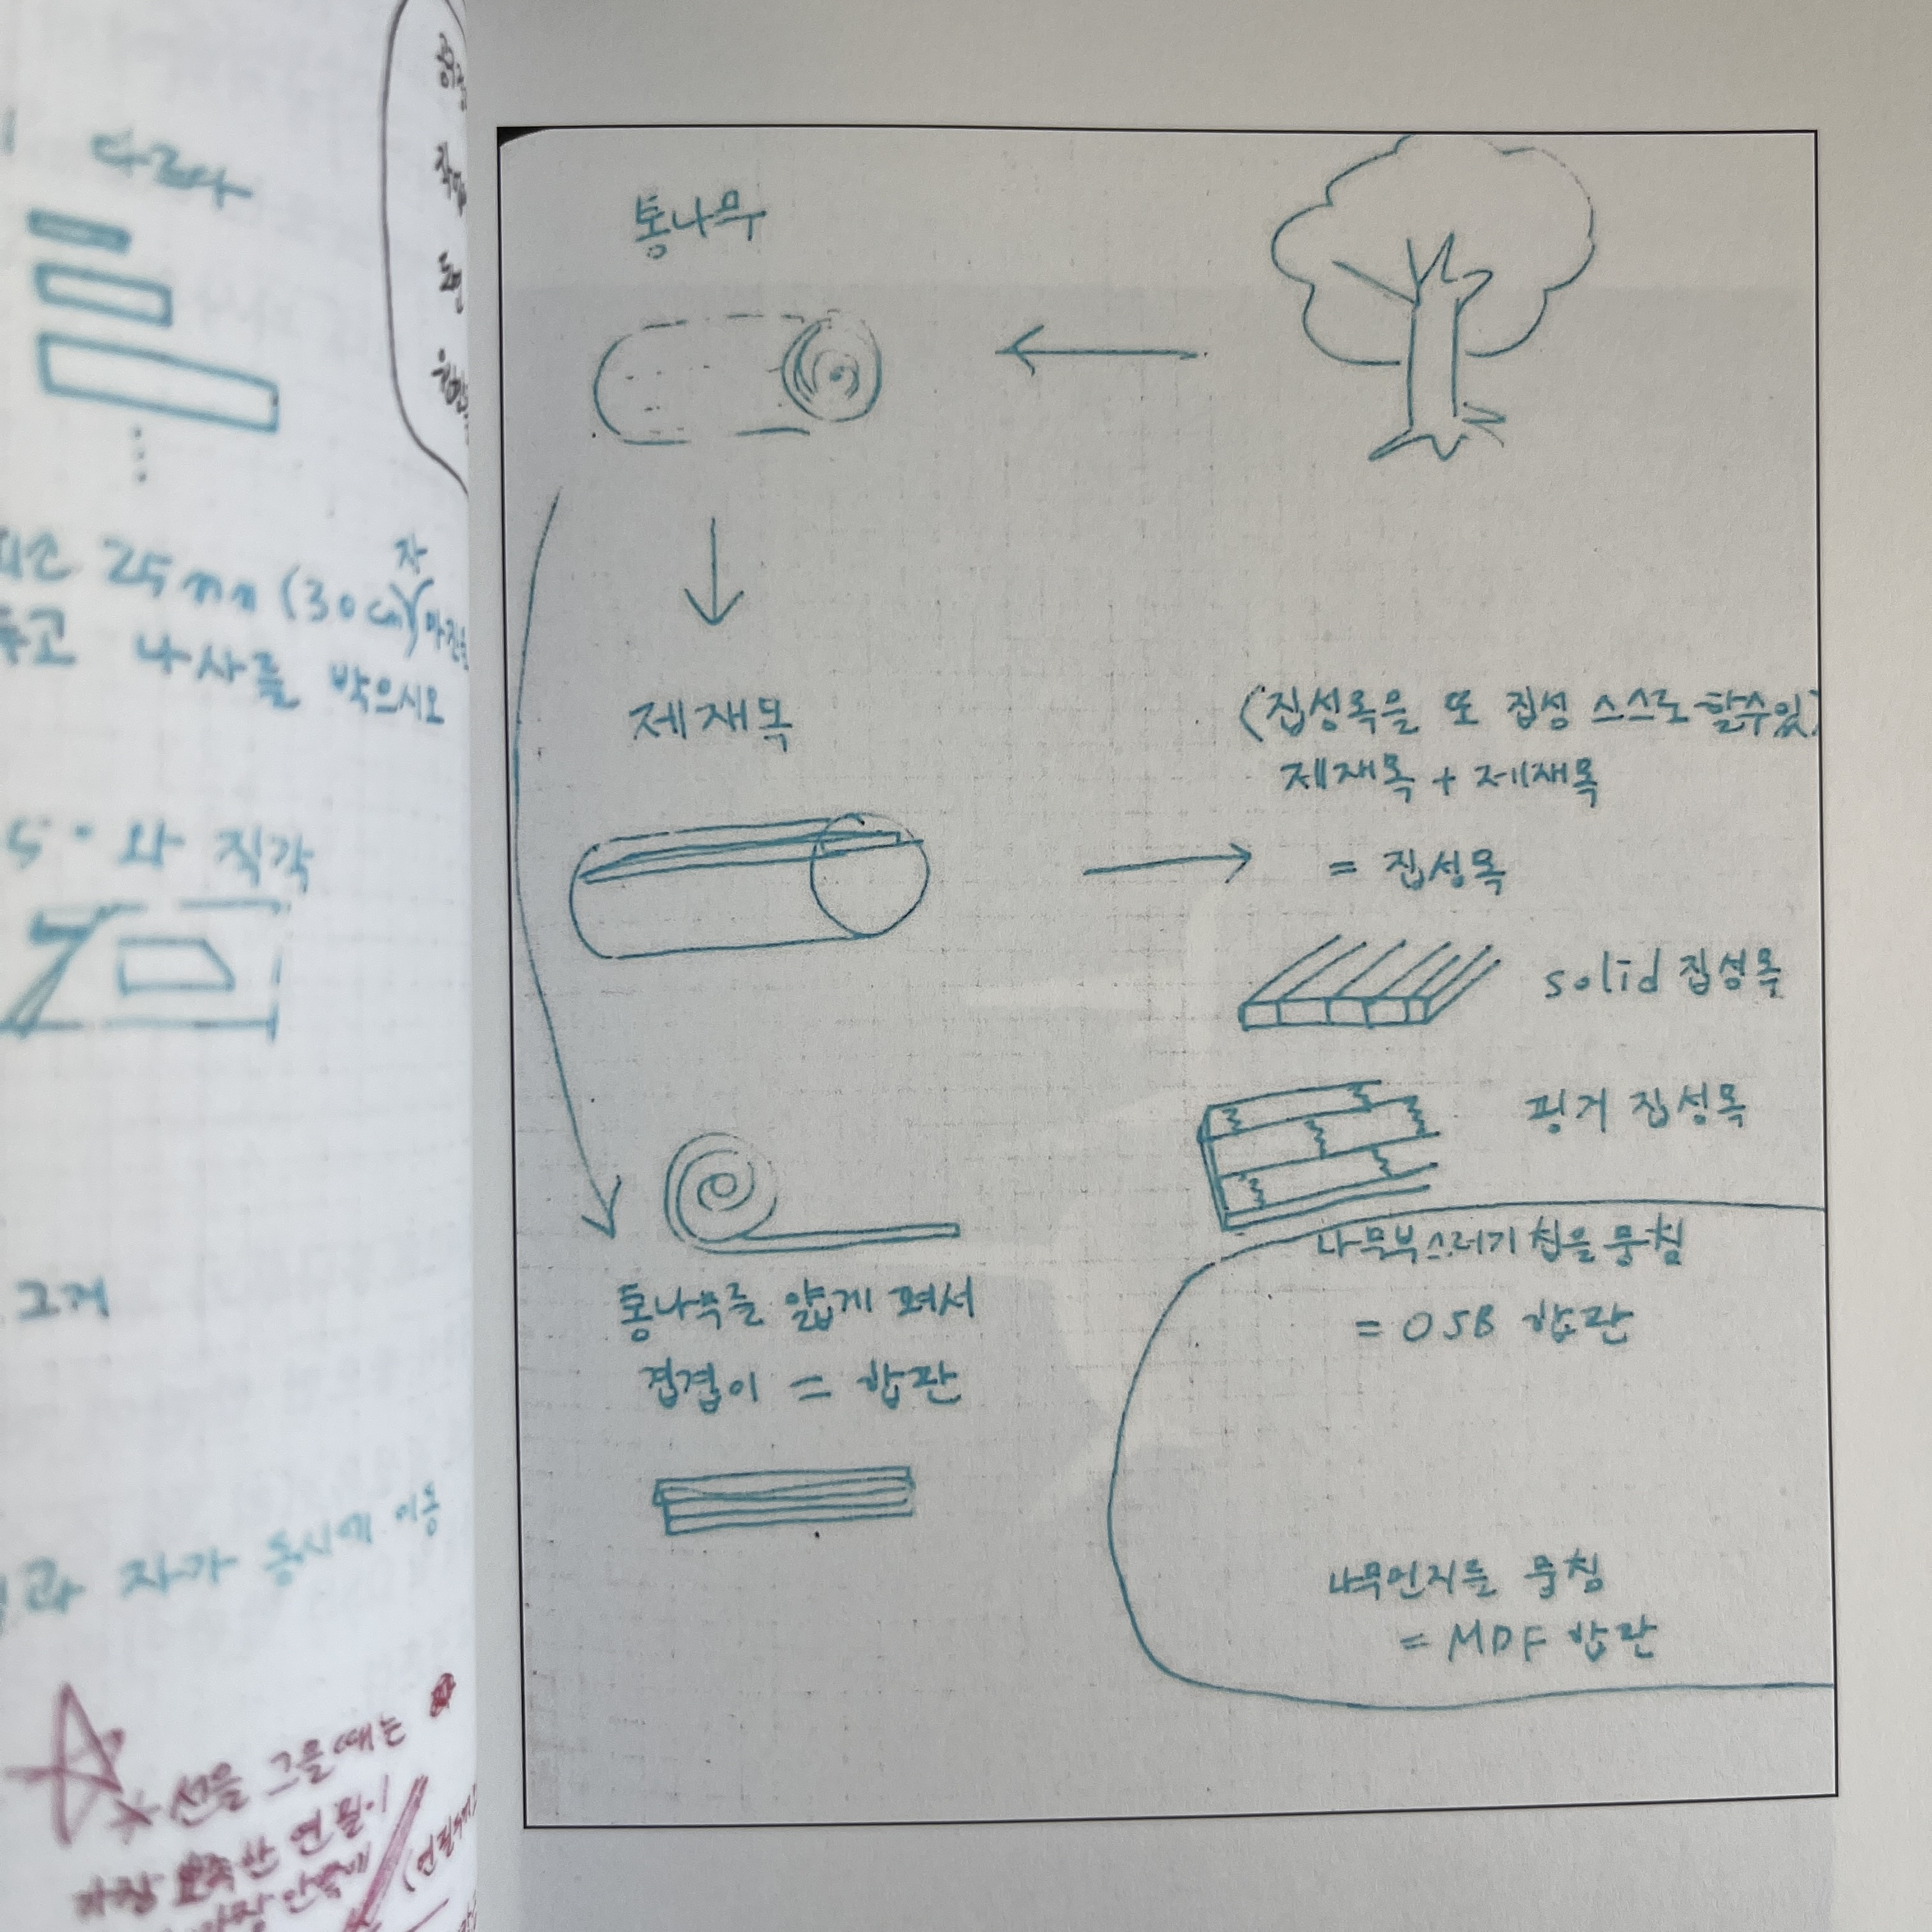 다르다
25mm (30cm)
자
나사를 박으시오
와 직각
그게
자가 동시에 이동
선을 그을 때는
가장 뾰족한 연필이
통나무
제재목
(집성목을 또 집성 스스로 할수있
제재목 + 제재목
= 집성목
solid 집성목
핑거 집성목
통나무를 얇게 펴서
겹겹이 = 합판
나무부스러기 칩을 뭉침
= OSB 합판
나무먼지를 뭉침
= MDF 합판